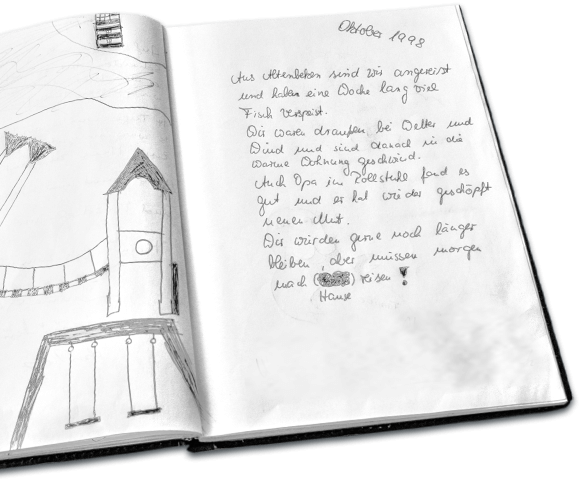 Oktober 1998
Aus Altenbeken sind wir angereist
und haben eine Woche lang viel
Fisch verspeist.
Wir waren draußen bei Wetter und
Wind und sind danach in die
warme Wohnung geschwind.
Auch Opa im Rollstuhl fand es
gut und er hat wieder geschöpft
neuen Mut.
Wir würden gerne noch länger
bleiben, aber müssen morgen
nach () reisen !
Hause